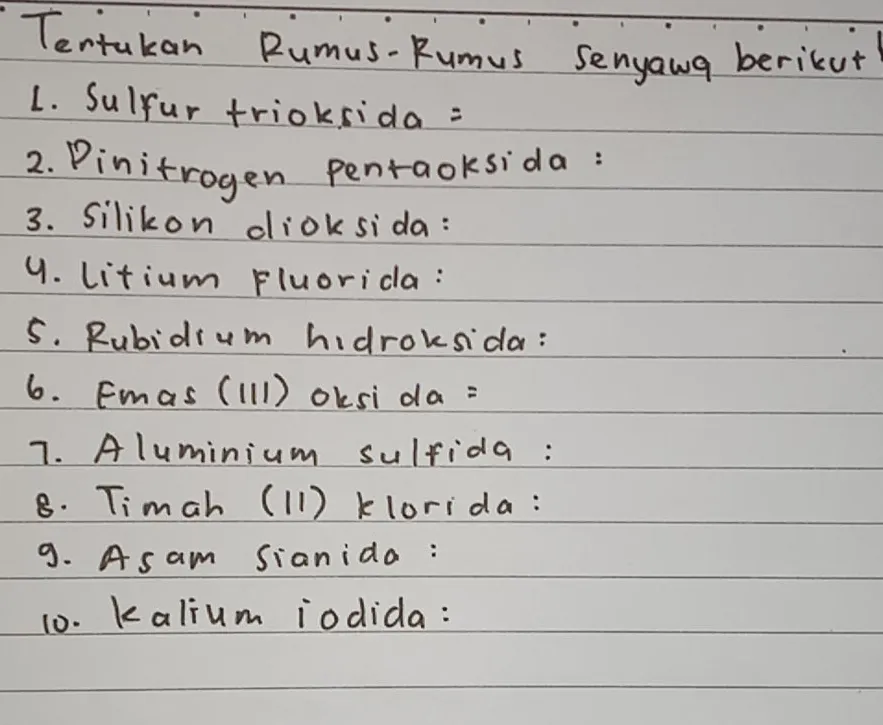 Tentukan Rumus-Rumus senyawa berikut!
1. Sulfur trioksida =
2. Dinitrogen pentaoksida :
3. Silikon dioksida :
4. Litium Fluorida :
5. Rubidium hidroksida :
6. Emas (III) oksida =
7. Aluminium sulfida :
8. Timah (II) klorida :
9. Asam Sianida :
10. Kalium iodida :